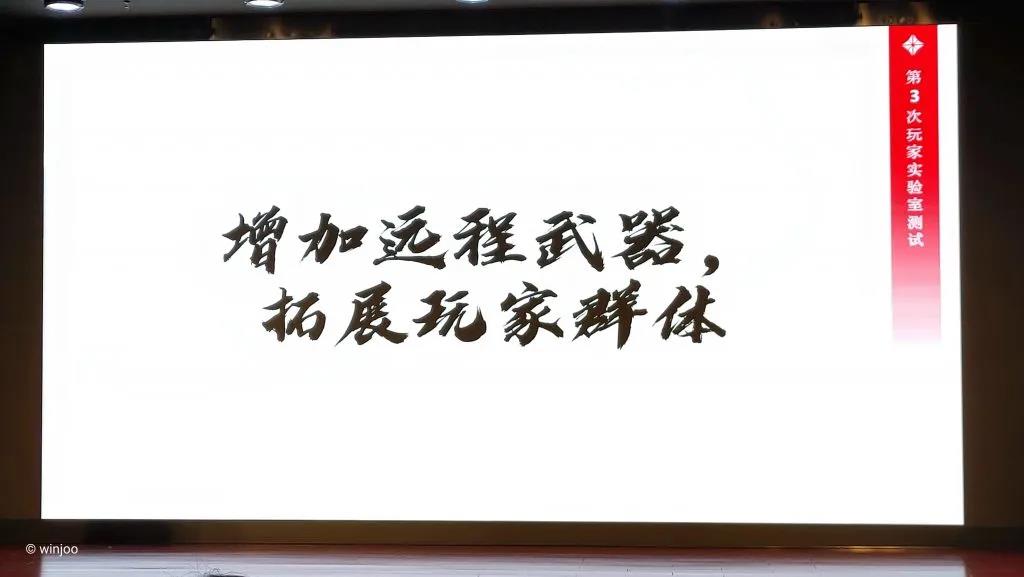 增加远程武器，
拓展玩家群体
第3次玩家实验室测试
© winjoo